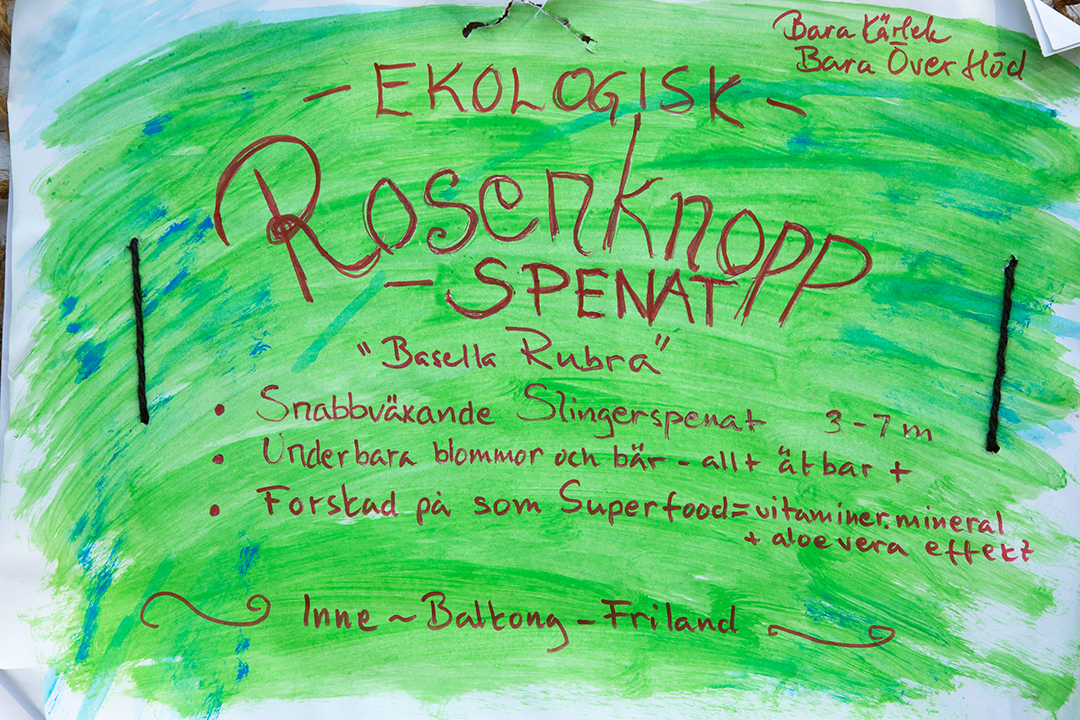 Bara Kärlek
Bara Överflöd
- EKOLOGISK -
Rosenknopp
- SPENAT
"Basella Rubra"
• Snabbväxande Slingerspenat 3-7 m
• Underbara blommor och bär - allt ätbart
• Forskad på som Superfood = vitaminer. mineral
+ aloe vera effekt
Inne ~ Balkong - Friland